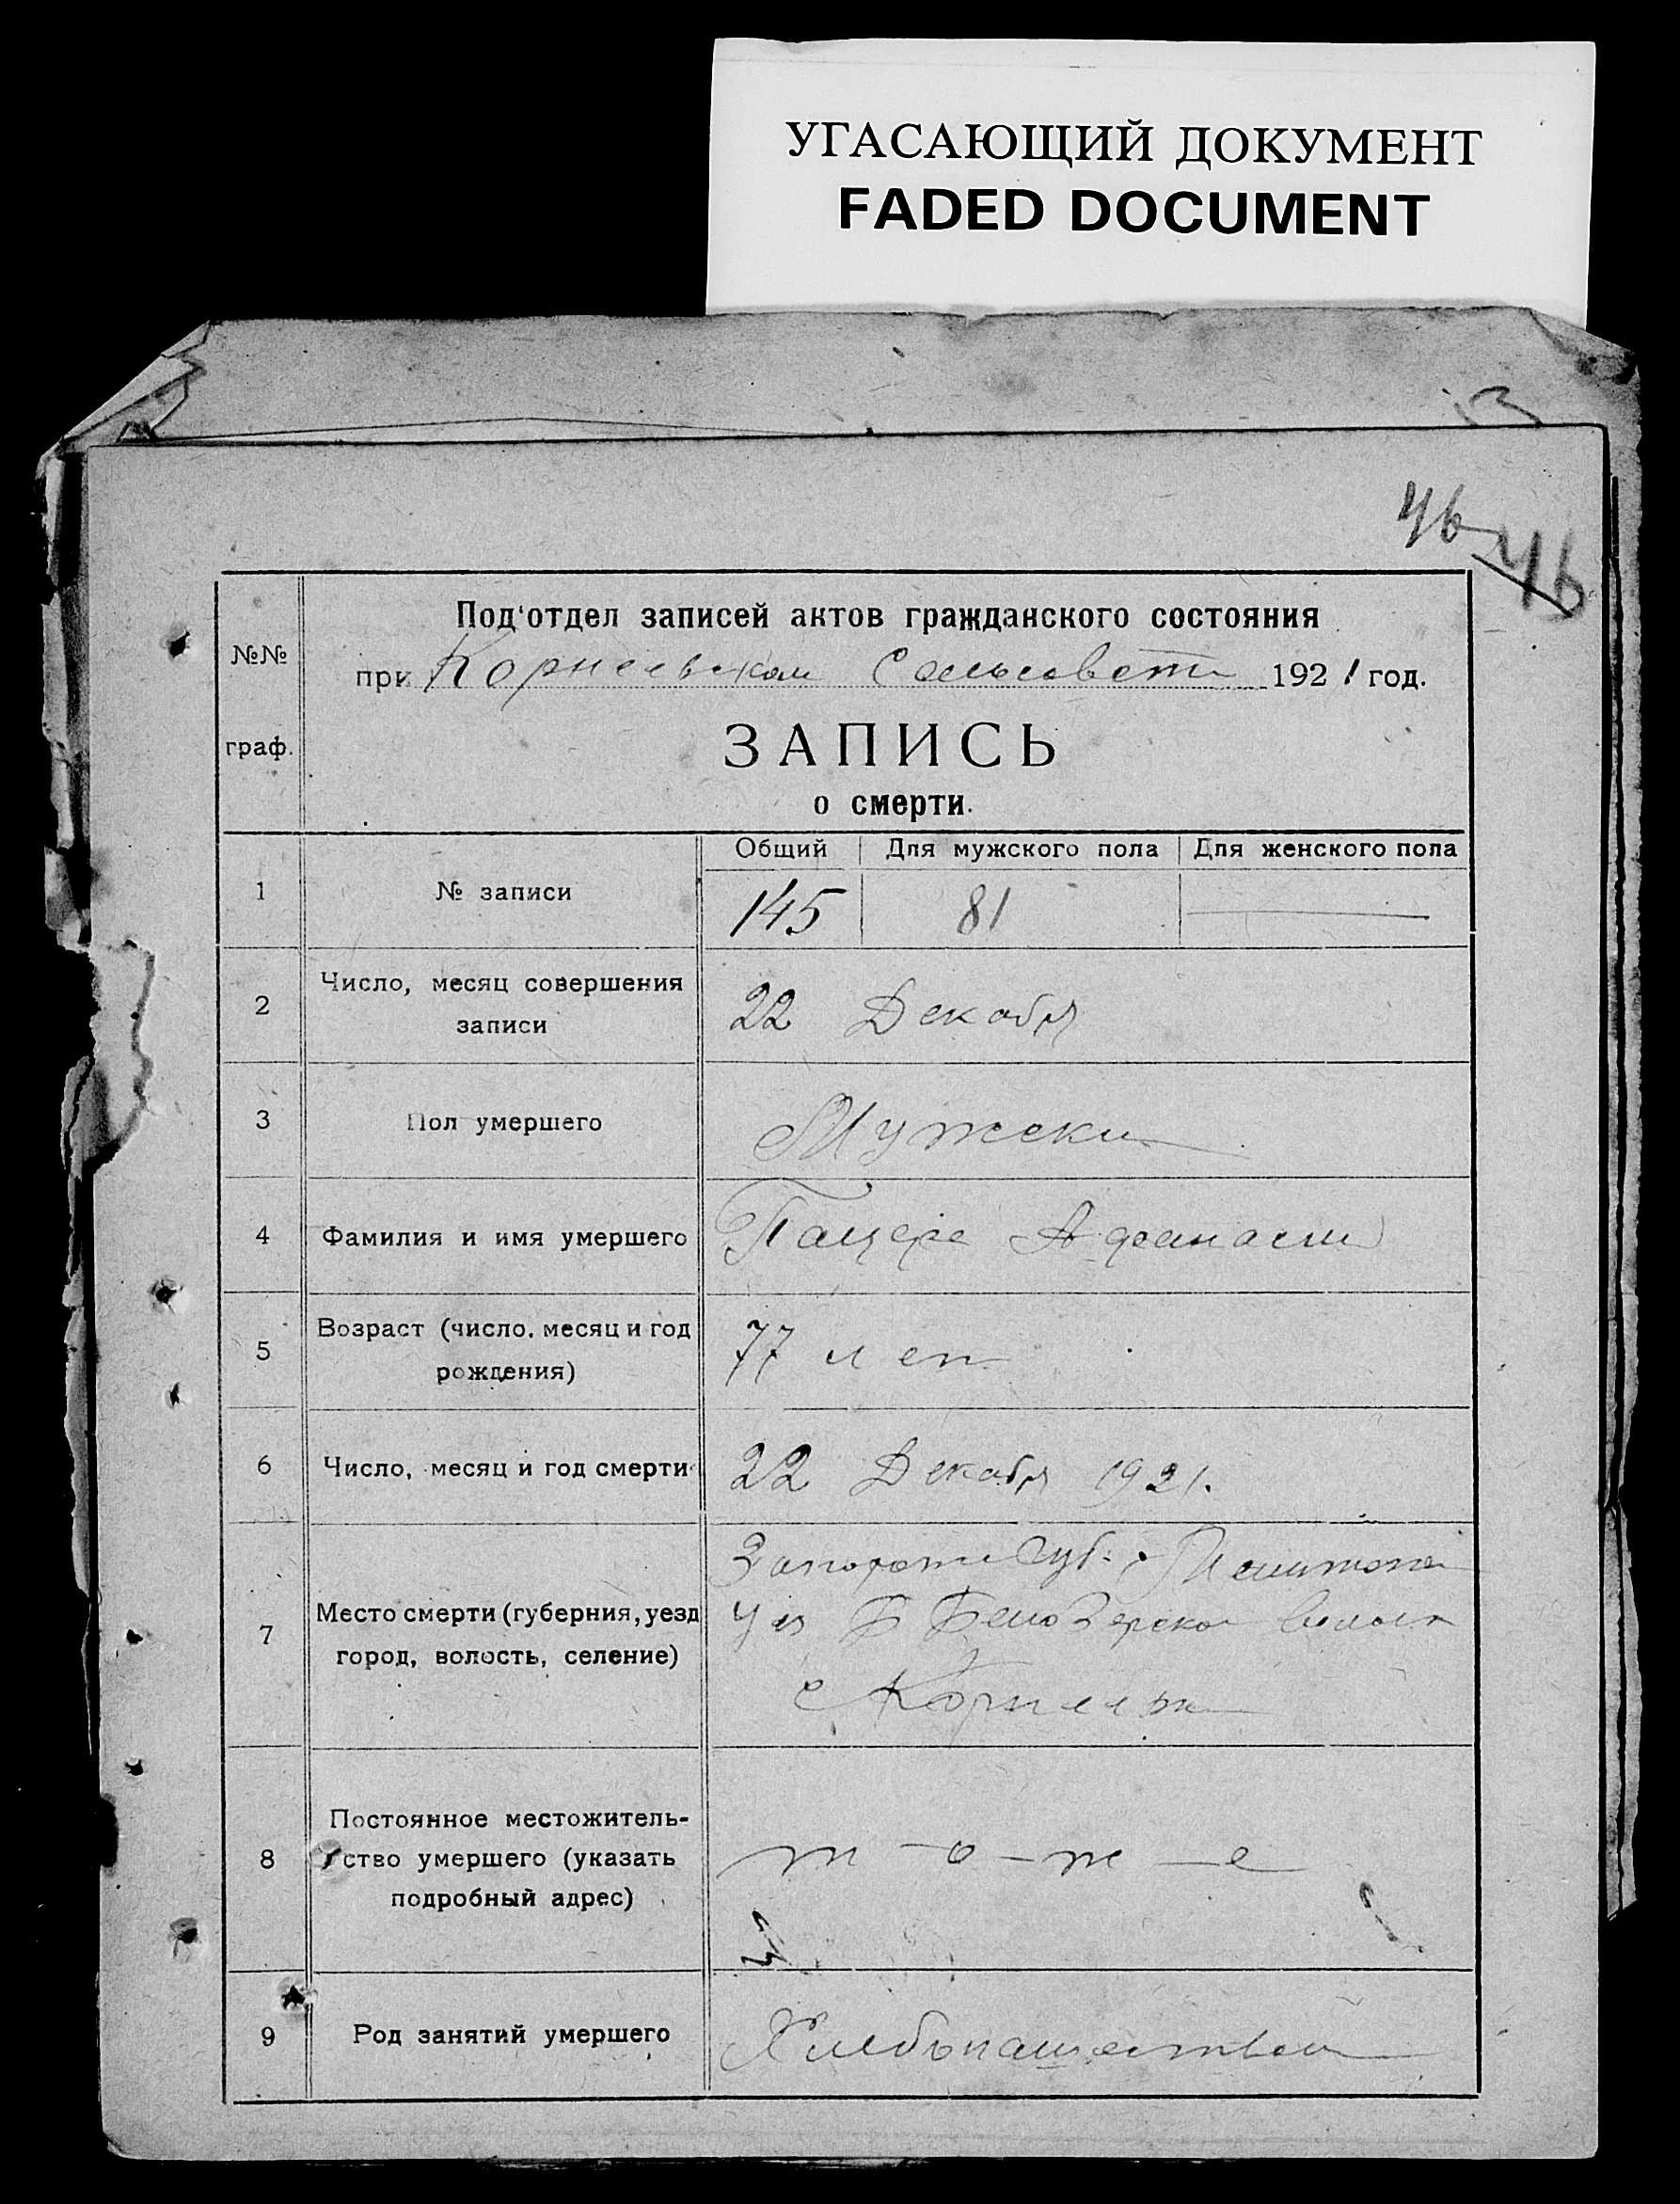 УГАСАЮЩИЙ ДОКУМЕНТ
FADED DOCUMENT
46
46
№№
граф.
Под'отдел записей актов гражданского состояния
при Корнеевском Сельсовете 1921 год.
ЗАПИСЬ
о смерти.
Общий Для мужского пола Для женского пола
1 № записи 145 81 —
2 Число, месяц совершения
записи
22 Декабря
3 Пол умершего Мужски
4 Фамилия и имя умершего Афанаси
5 Возраст (число, месяц и год
рождения)
77 лет
6 Число, месяц и год смерти 22 Декабря 1921.
7 Место смерти (губерния, уезд
город, волость, селение)
Губ.
Уез Б Белозерско
с
8 Постоянное местожитель-
ство умершего (указать
подробный адрес)
т - о - ж - е
9 Род занятий умершего